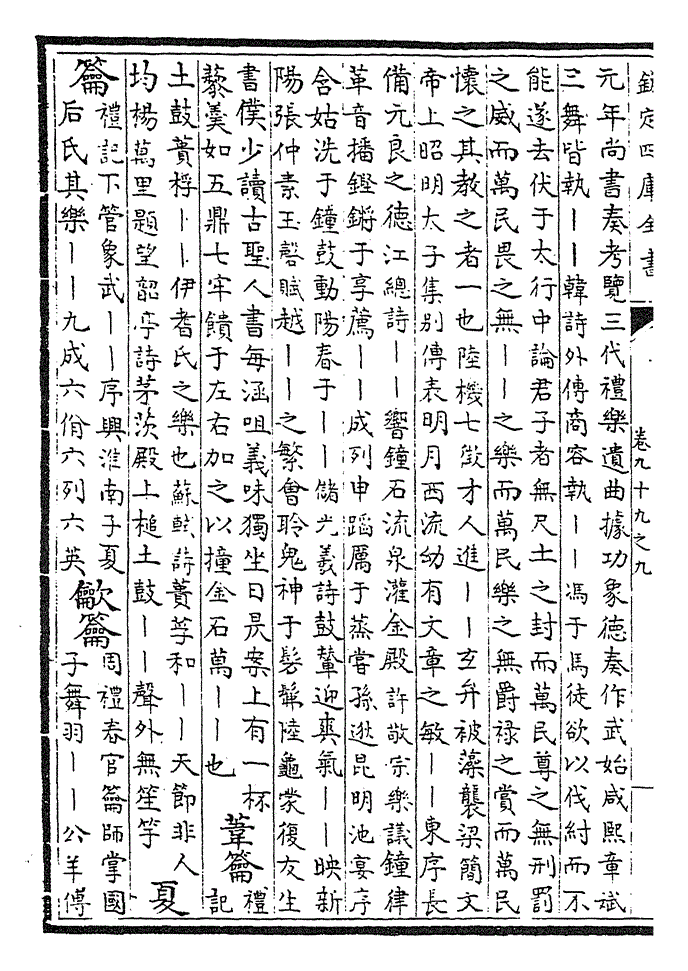 欽定四庫全書
卷九十九之九
元年尚書奏考覽三代禮樂遺曲據功象德奏作武始咸熙章斌
三舞皆執丨丨韓詩外傳商容執丨丨馮于馬徒欲以伐紂而不
能遂去伏于太行中論君子者無尺土之封而萬民尊之無刑罰
之威而萬民畏之無丨丨之樂而萬民樂之無爵祿之賞而萬民
懷之其教之者一也陸機七徵才人進丨丨玄弁被藻襲梁簡文
帝上昭明太子集别傳表明月西流幼有文章之敏丨丨東序長
備元良之德江總詩丨丨響鐘石流泉灌金殿許敬宗樂議鐘律
革音播鏗鏘于享薦丨丨成列申蹈厲于蒸嘗孫逖昆明池宴序
含姑洗于鐘鼓動陽春于丨丨儲光羲詩鼓鼙迎爽氣丨丨映新
陽張仲素玉磬賦越丨丨之繁會聆鬼神于髣髴陸龜蒙復友生
書僕少讀古聖人書每涵咀義味獨坐日昃案上有一杯
藜羹如五鼎七牢饋于左右加之以撞金石萬丨丨也
葦籥
禮
記
土鼓蕢桴丨丨伊耆氏之樂也蘇軾詩蕢莩和丨丨天節非人
均楊萬里題望韶亭詩茅茨殿上槌土鼓丨丨聲外無笙竽
夏
籥
禮記下管象武丨丨序興淮南子夏
后氏其樂丨丨九成六佾六列六英
龡籥
周禮春官籥師掌國
子舞羽丨丨公羊傳